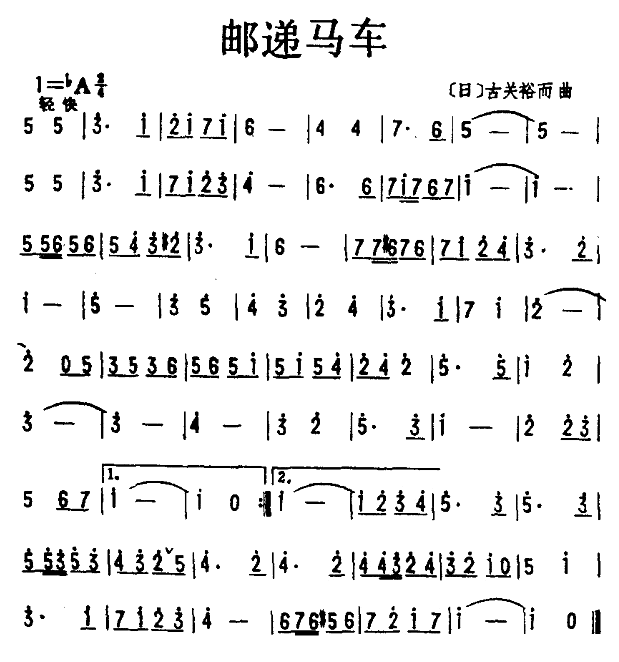 邮递马车
1=♭A 2/4
轻快
〔日〕古关裕而 曲
5 5 | 3̇· i̇ | 2̇ i̇ 7 i̇ | 6 — | 4 4 | 7· 6 | 5 — | 5 — |
5 5 | 3̇· i̇ | 7 i̇ 2̇ 3̇ | 4̇ — | 6· 6 | 7 i̇ 7 6 7 | i̇ — | i̇ — |
5 5 6 5 6 | 5 4̇ 3̇ #2̇ | 3̇· i̇ | 6 — | 7 7 #6 7 6 | 7 i̇ 2̇ 4̇ | 3̇· 2̇ |
i̇ — | 5̇ — | 3̇ 5̇ | 4̇ 3̇ | 2̇ 4̇ | 3̇· i̇ | 7 i̇ | 2̇ — |
2̇ 0 5 | 3 5 3 6 | 5 6 5 i̇ | 5 i̇ 5 4̇ | 2̇ 4̇ 2̇ | 5̇· 5̇ | i̇ 2̇ |
3̇ — | 3̇ — | 4̇ — | 3̇ 2̇ | 5̇· 3̇ | i̇ — | 2̇ 2̇ 3̇ |
5 6 7 | 1. i̇ — | i̇ 0 :| 2. i̇ — | i̇ 2̇ 3̇ 4̇ | 5̇· 3̇ | 5̇· 3̇ |
5̇ 5̇ 3̇ 5̇ 3̇ | 4̇ 3̇ 2̇ ˇ 5 | 4̇· 2̇ | 4̇· 2̇ | 4̇ 4̇ 3̇ 2̇ 4̇ | 3̇ 2̇ i̇ 0 | 5 i̇ |
3̇· i̇ | 7 i̇ 2̇ 3̇ | 4̇ — | 6 7 6 #5 6 | 7 2̇ i̇ 7 | i̇ — | i̇ 0 ‖